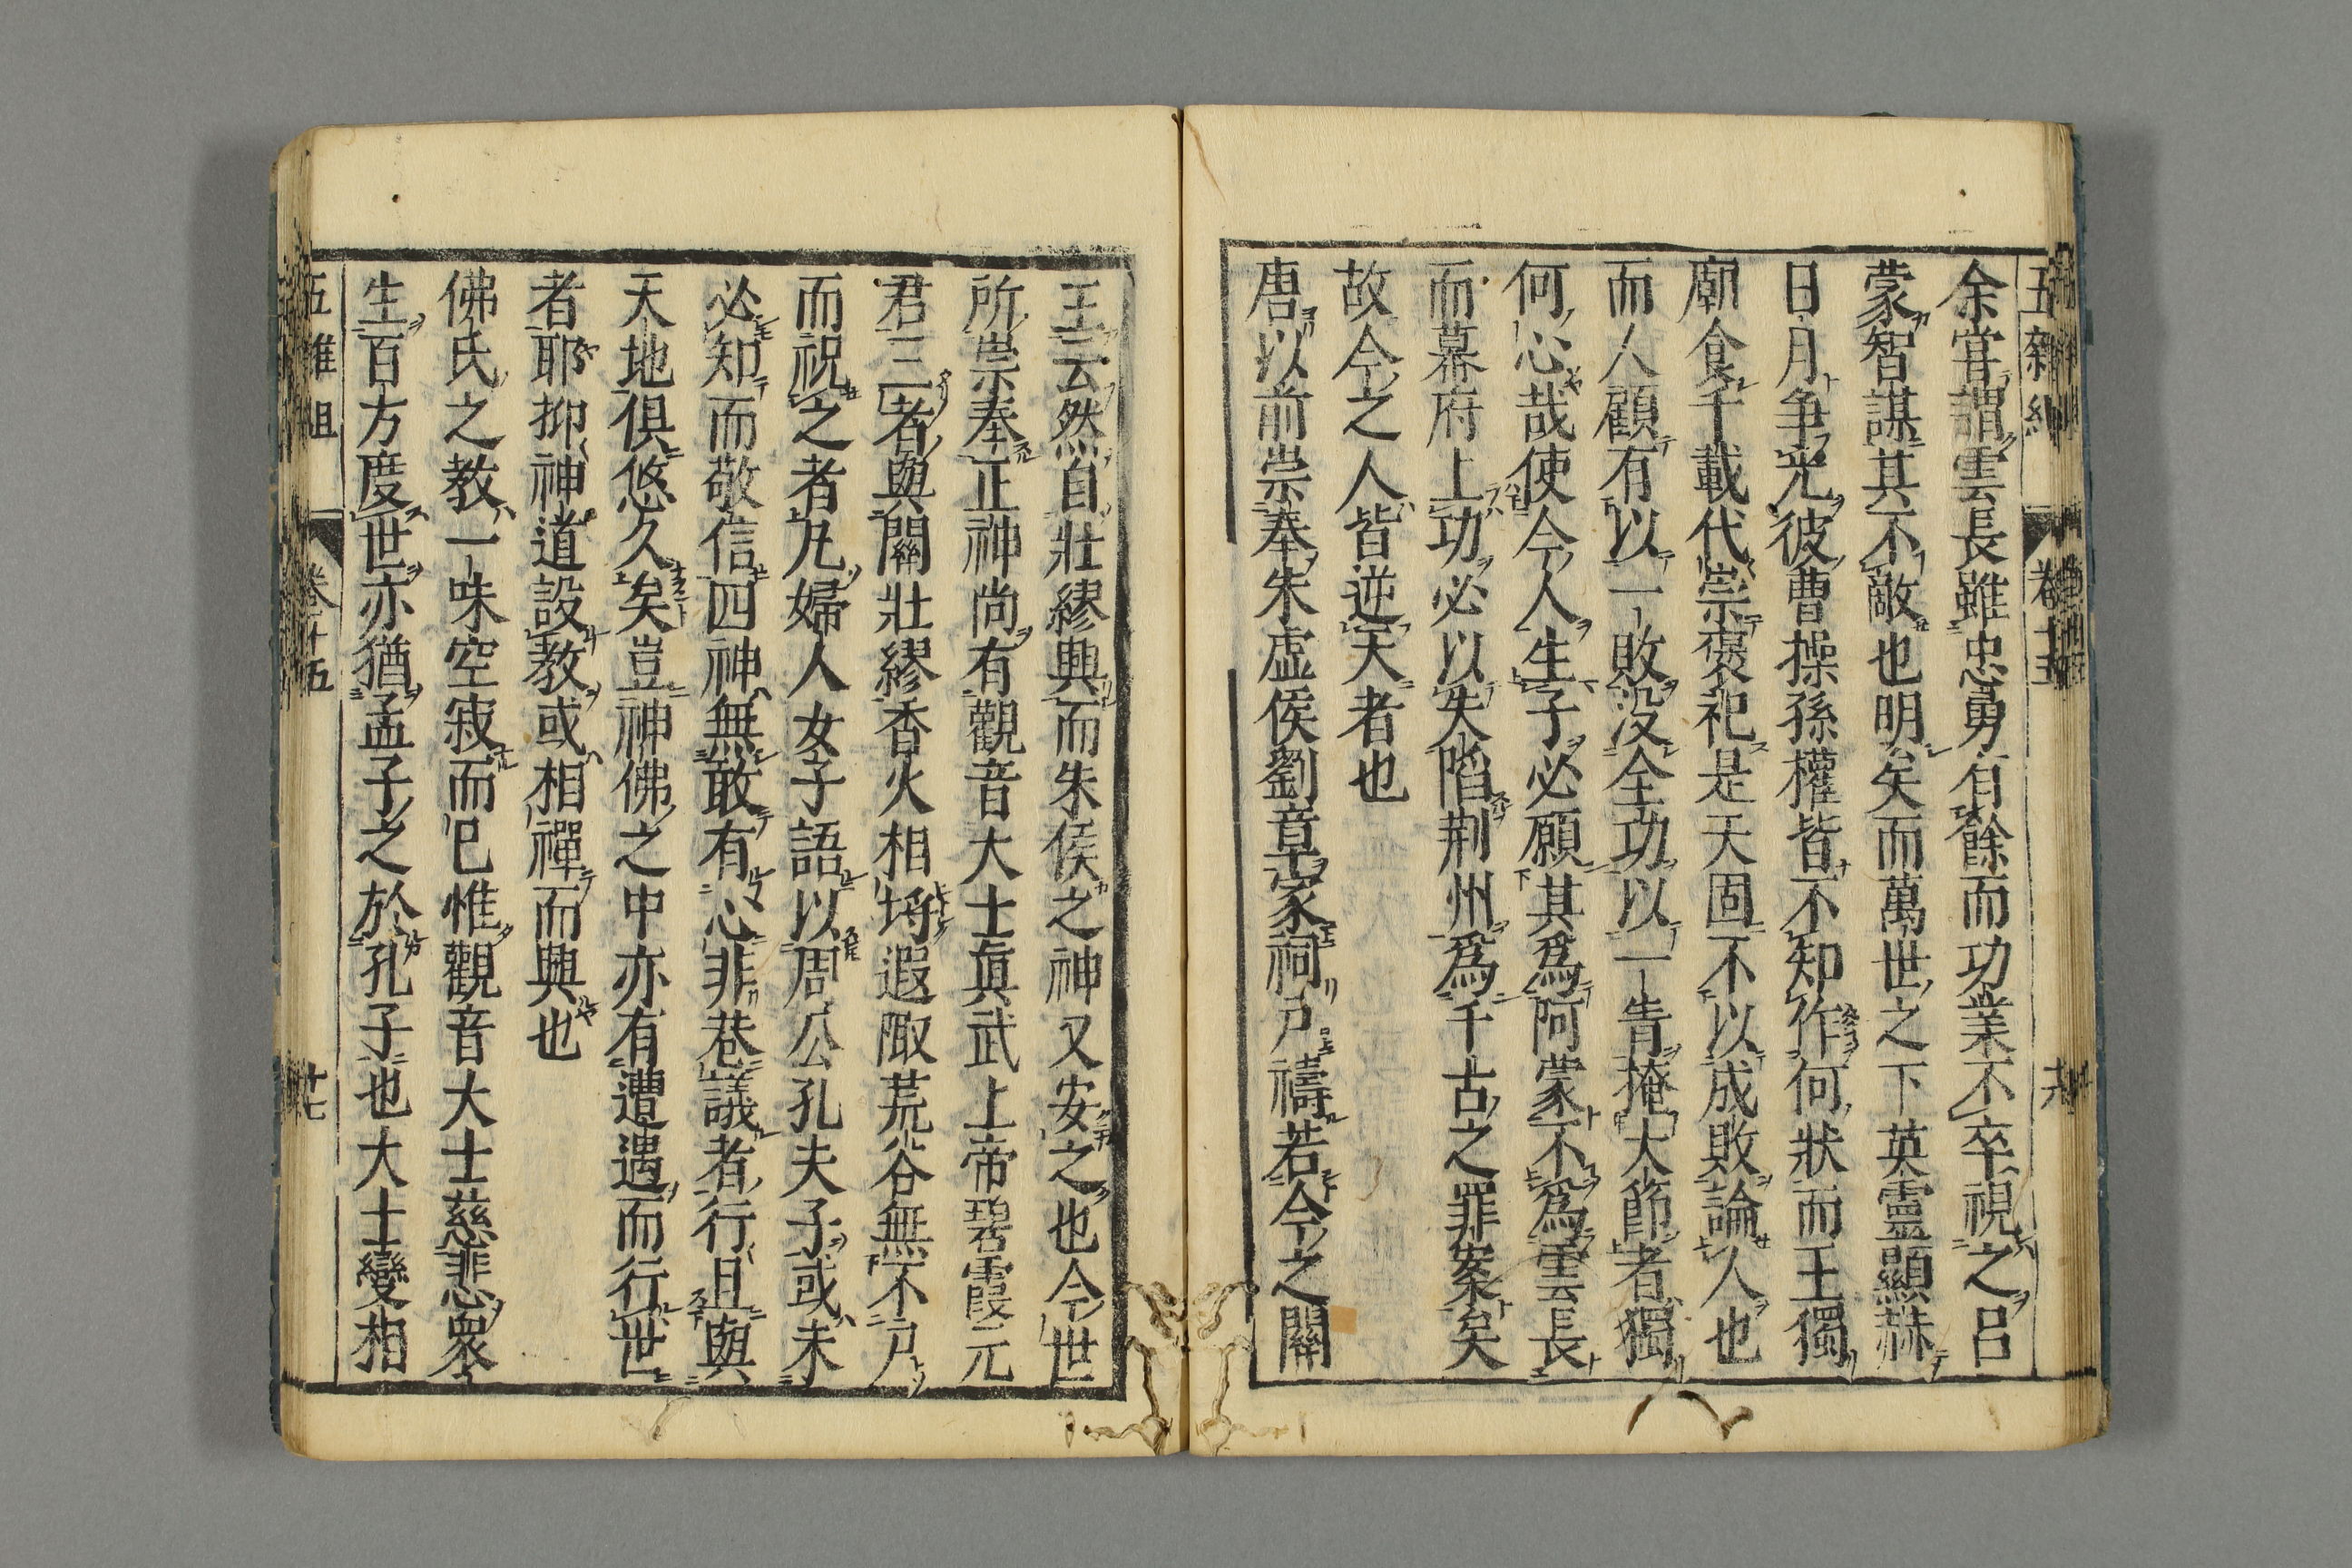 五雜組 卷十五 十六
余嘗謂雲長雖忠勇有餘而功業不卒視之呂
蒙智謀其不敵也明矣而萬世之下英靈顯赫
日月争光彼曹操孫權皆不知作何狀而王獨
廟食千載代崇褒祀是天固不以成敗論人也
而人顧有以一敗没全功以一眚掩大節者獨
何心哉使今人生子必願其爲阿蒙不爲雲長
而幕府上功必以失陷荆州爲千古之罪案矣
故今之人皆逆天者也
唐以前崇奉朱虛侯劉章家祠戸禱若今之關
王云然自壯繆興而朱侯之神又安之也今世
所崇奉正神尚有觀音大士眞武上帝碧霞元
君三者與關壯繆香火相埒遐陬荒谷無不尸
而祝之者凡婦人女子語以周公孔夫子或未
必知而敬信四神無敢有心非巷議者行且與
天地俱悠久矣豈神佛之中亦有遭遇而行世
者耶抑神道設教或相禪而興也
佛氏之教一味空寂而已惟觀音大士慈悲衆
生百方度世亦猶孟子之於孔子也大士變相
五雜組 卷十五 十七